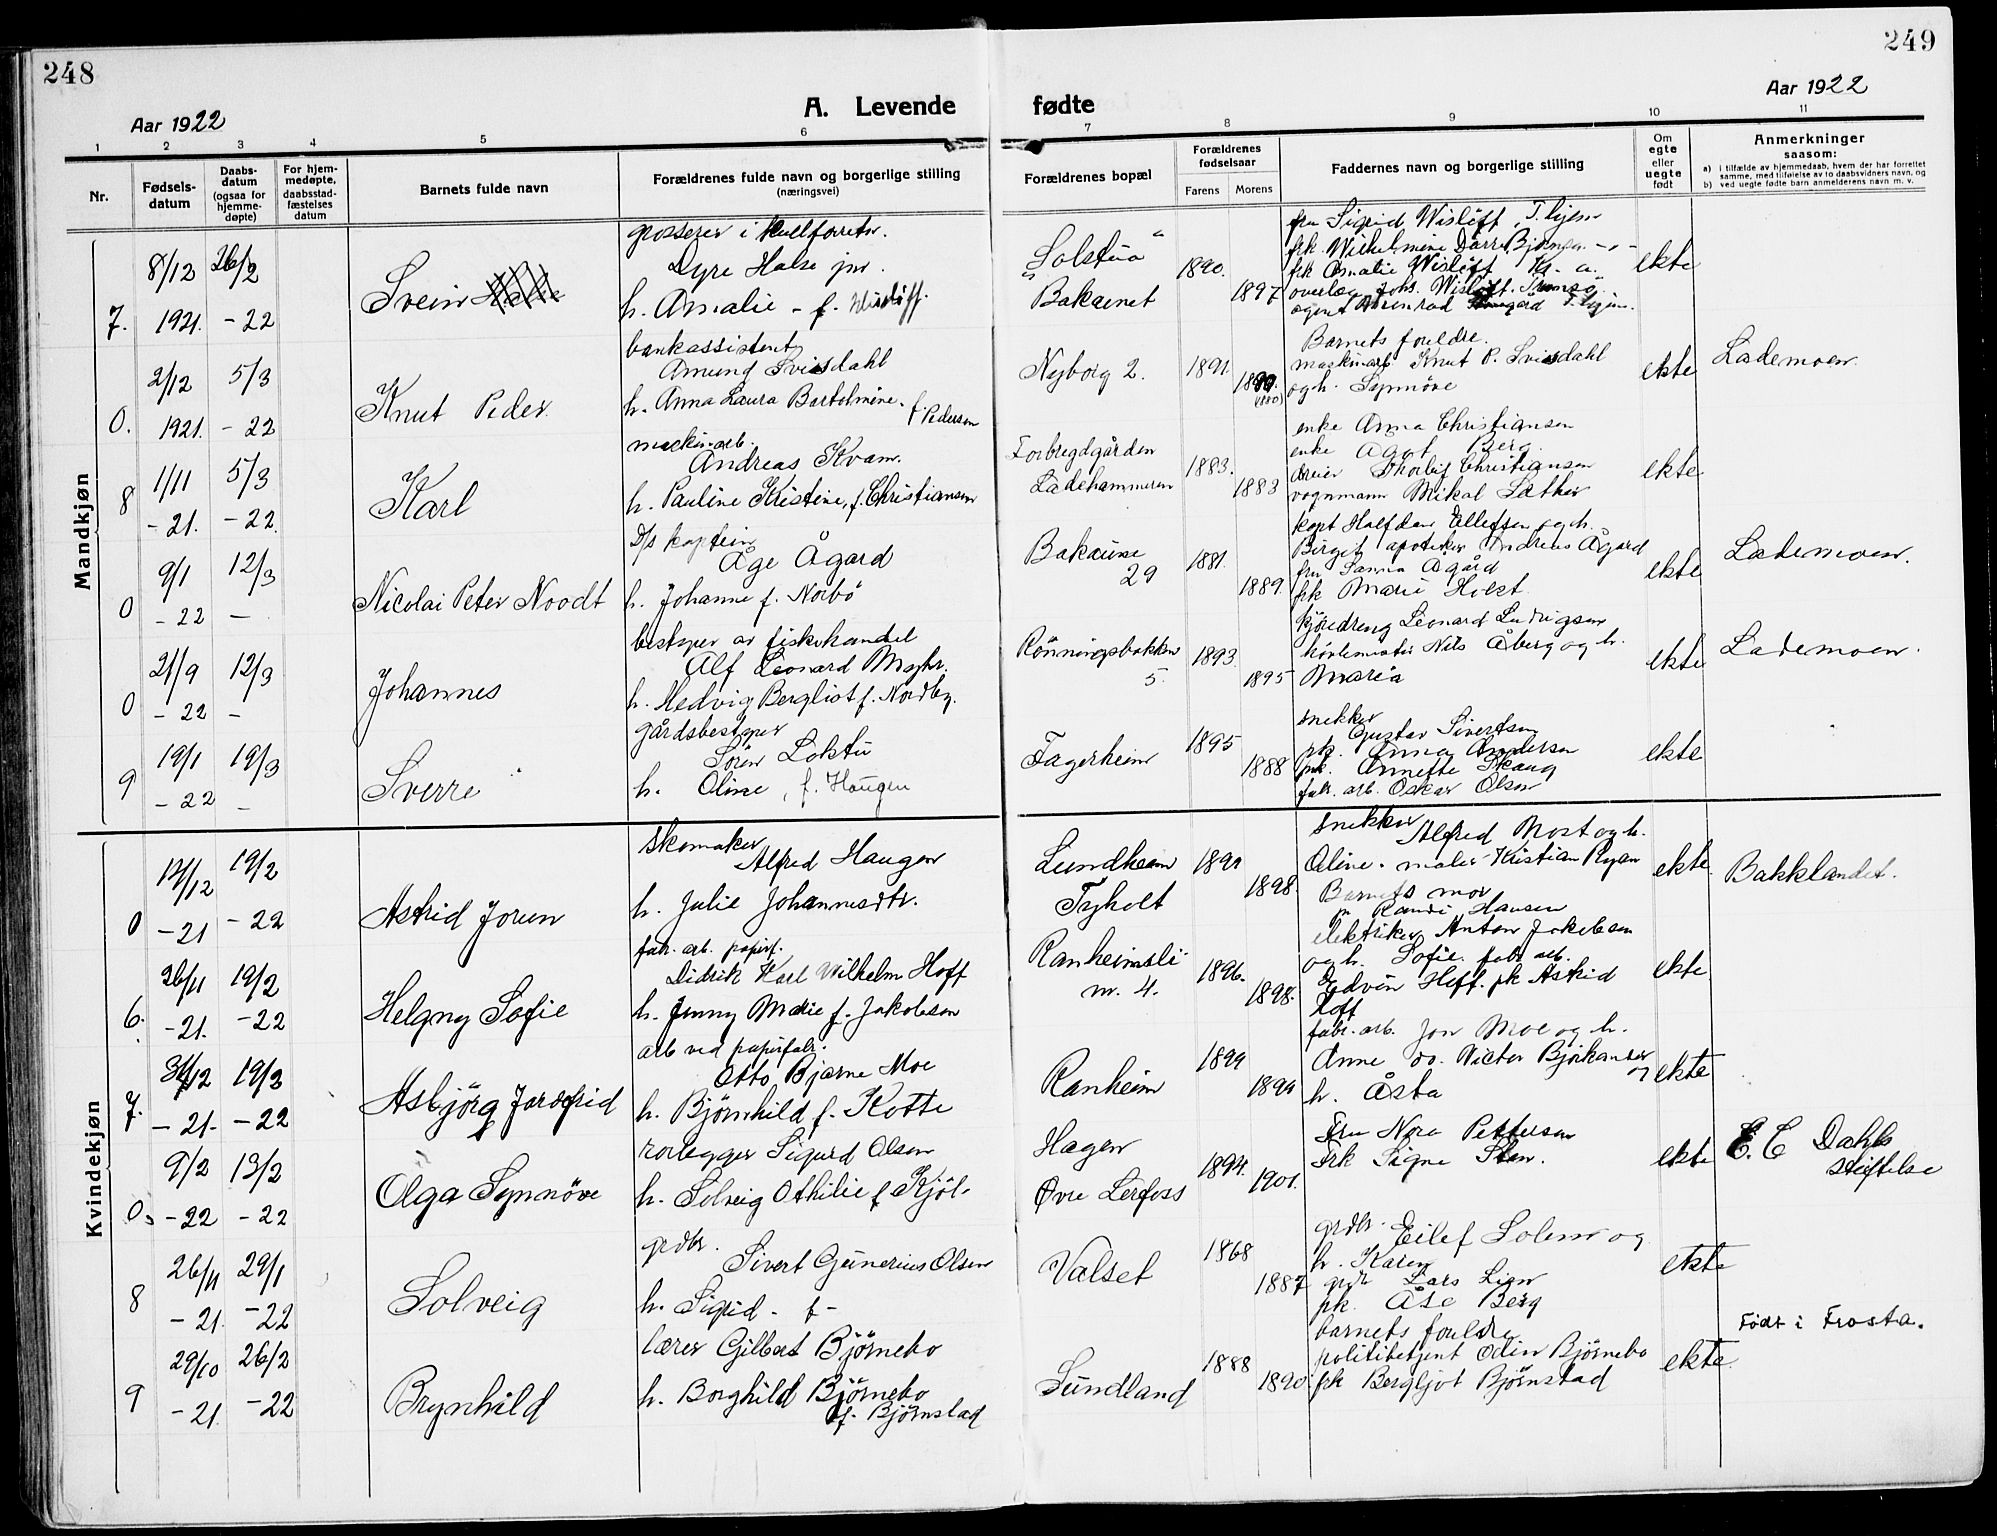 248
249
Aar 1922
A. Levende fødte
Aar 1922
1 2 3 4 5 6 7 8 9 10 11
Nr.
Fødsels-
datum
Daabs-
datum
(ogsaa for
hjemme-
døpte)
For hjem-
medøpte,
daabsstad-
fæstelses
datum
Barnets fulde navn
Forældrenes fulde navn og borgerlige stilling
(næringsvei)
Forældrenes bopæl
Forældrenes
fødselsaar
Farens Morens
Faddernes navn og borgerlige stilling
Om
egte
eller
uegte
født
Anmerkninger
saasom:
a) i tilfælde av hjemmedaab, hvem der har forrettet
samme, med tilføielse av to daabsvidners navn, og
b) ved uegte fødte barn anmelderens navn m. v.
Mandkjøn
7.
8/12
1921.
26/2
-22
Svein
grosserer i
Dyre Halse jnr.
h. Amalie - f. Wisløff.
Solstua
Bakaunet
1890.
1897
fru Sigrid Wisløff, T.hjem
frk Wilhelmine Darre
frk Amalie Wisløff
overlæg Johs. Wisløff, Tromsø
agent
ekte
0.
2/12
1921.
5/3
-22
Knut Peder
bankassistent
Amund Svisdahl
h. Anna Laura Bartolmine. f. Pedersen
Nyborg 2.
1891.
Barnets foreldre.
maskinarb Knut P. Svisdahl
og h. Synnöve
ekte
Lademoen.
8
1/11
-21.
5/3
-22
Karl
maskinarb.
Andreas Kvam.
h. Pauline Kristine, f. Christiansen
Forbregdgården
Ladehammeren
1883.
1883
enke Anna Christiansen
enke Agot Berg.
dreier Thorleif Christiansen
vognmann Mikal Sæther
ekte
0
9/1
-22
12/3
-
Nicolai Peter Noodt
D/s kaptein
Åge Ågard
h. Johanne f. Norbö
Bakaune
29
1881.
1889.
kapt Halfdan Ellefsen og h.
Birgit, apoteker Andreas Ågard
fru Sanna Ågård
frk Marie Holst
ekte
Lademoen.
0
21/9
-22
12/3
-
Johannes
bestyrer av fiskehandel
Alf Leonard Myhr.
h. Hedvig Bergliot f. Nordby.
Rönningsbakken
5.
1893.
1895
kjøredreng Leonard Ludvigsen
Nils Åberg og h.
Maria
ekte
Lademoen.
9
19/1
-22
19/3
-
Sverre
gårdsbestyrer
Sören Loktu
h. Oline, f. Haugen
Fagerheim
1895
1888
snekker
Gustav Sivertsen
frk. Anna Andersen
frk. Annette Skaug
fabr. arb. Oskar Olsen
ekte
Kvindekjøn
0
14/12
-21
19/2
-22
Astrid Jorun
skomaker
Alfred Haugen
h. Julie Johannesdtr.
Lundheim
Tyholt
1898.
snekker
Alfred Most og h.
Oline. maler Kristian Ryan
Barnets mor
Randi Hansen
ekte
Bakklandet.
6.
26/11
-21.
19/2
-22
Helgny Sofie
fabr. arb. papirf.
Didrik Karl Wilhelm Hoff
h. Jenny Marie f. Jakobsen
Ranheimsli
nr. 4.
1896.
1898.
elektriker Anton Jakobsen
og h. Sofie. fabr arb.
Edvin Hoff. pk Astrid
Hoff
ekte
7.
31/12
-21-
19/3
-22
Asbjörg Jardfrid
arb ved papirfabr.
Otto Bjarne Moe
h. Björnhild f. Kotte
Ranheim
1899
1899
fabr. arb. Jon Moe og h.
Anne do. Victor Björkander og
h. Åsta
ekte
0
9/2
-22
13/2
-22
Olga Synnöve
rörlegger Sigurd Olsen
h. Solveig Othilie f Kjöl-
Hagen
Øvre Lerfoss
1894.
1901.
Fru Nora Pettersen
Frk Signe Sten.
ekte
E. C Dahls
stiftelse
8
26/11
-21.
29/1
-22
Solveig
grdbr.
Sivert Gunerius Olsen
h. Sigrid - f-
Valset
1868
1887
grdbr. Eilef Solem og
h. Karen
grdr Lars Lian
pk. Åse Berg
ekte
9
29/10
-21.
26/2
-22
Brynhild
lærer Gilbert Bjørnebo
h. Borghild Bjørnebo
f. Bjørnstad
Sundland
1888
1890
barnets foreldre
politibetjent Odin Bjørnebo
frk Bergljot Bjørnstad
ekte
Født i Frosta.